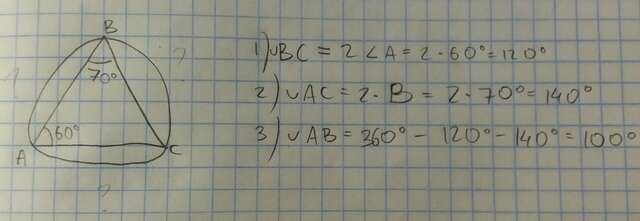 B
70°
60°
A
C
?
?
1) ∪BC = 2∠A = 2·60° = 120°
2) ∪AC = 2·B = 2·70° = 140°
3) ∪AB = 360° - 120° - 140° = 100°